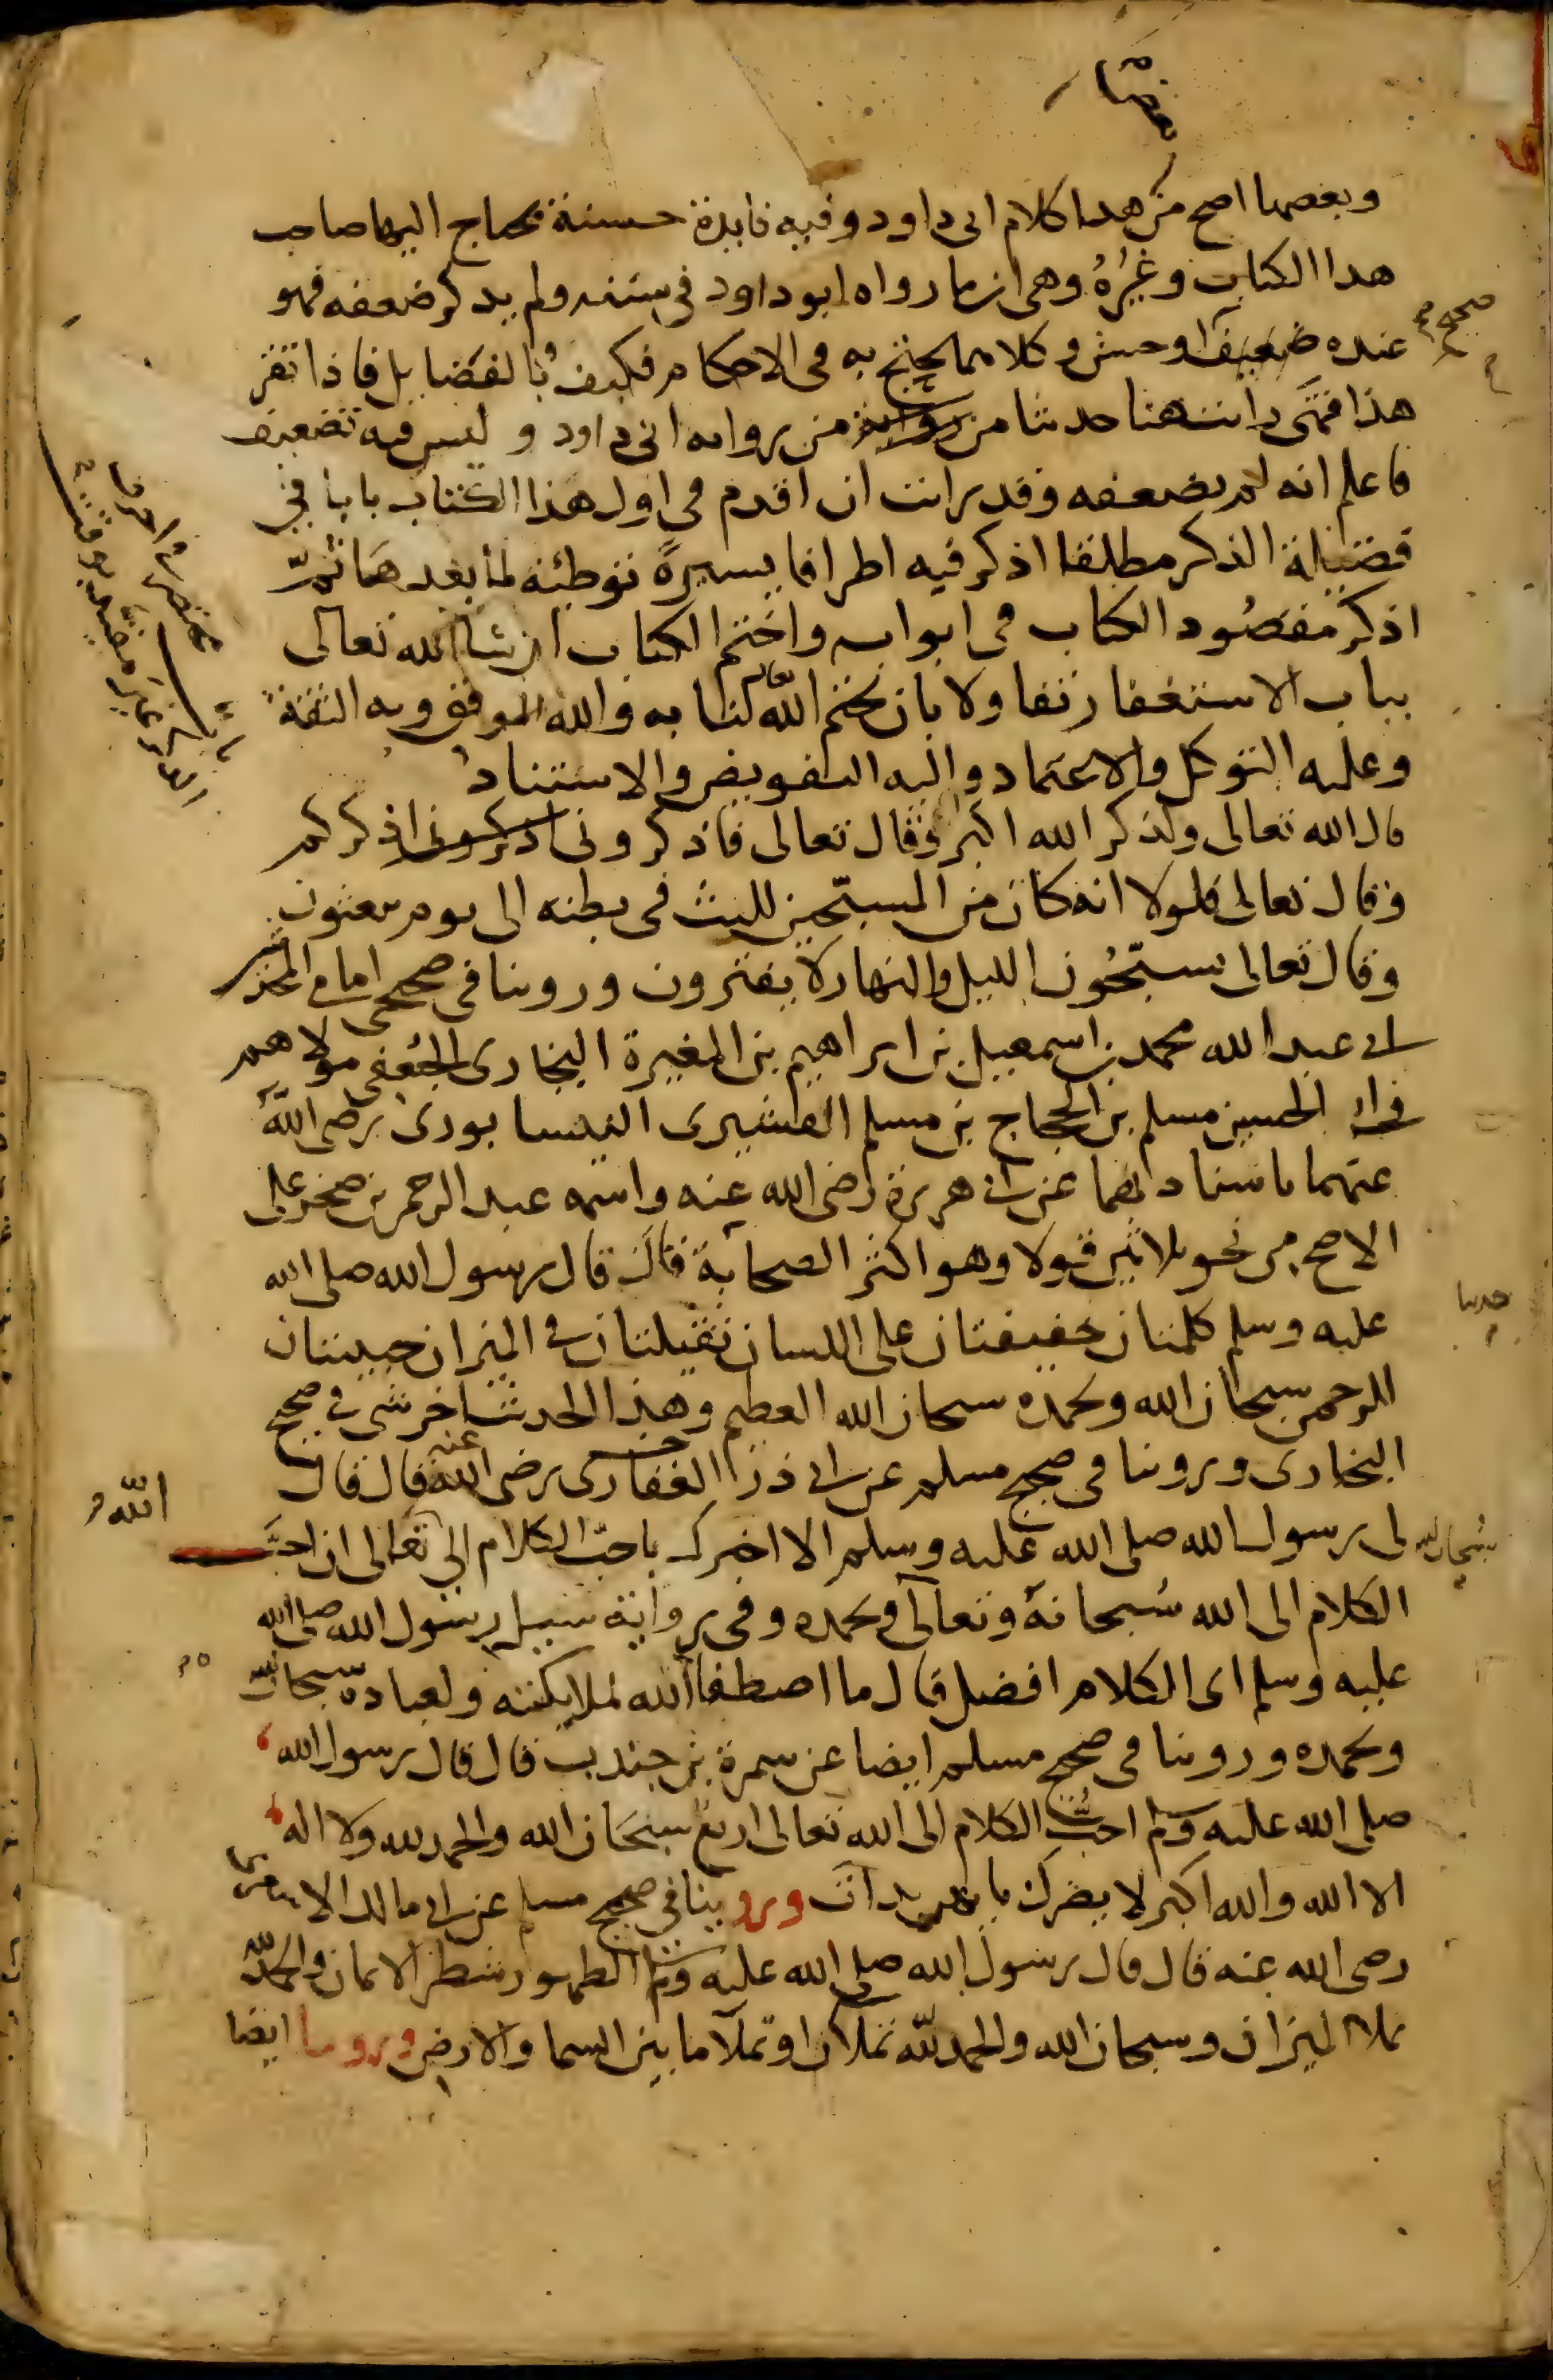 وبعضها اصح من هدا كلام ابى داود وفيه فايدة حسنة يحتاج اليها صاحب
هدا الكتاب وغيره وهى ان ما رواه ابو داود فى سننه ولم يدكر ضعفه فهو
عنده ضعيف او حسن وكلاهما يحتج به فى الاحكام فكيف بالفضايل فاذا تقرر
صحيح
هذا فمتى رايت هنا حديثا من رواية من رواية ابى داود وليس فيه تضعيف
فاعلم انه لم يضعفه وقد رايت ان اقدم فى اول هذا الكتاب بابا فى
فضيلة الذكر مطلقا اذكر فيه اطرافا يسيرة توطئة لما بعدها ثم
اذكر مقصود الكتاب فى ابوابه واختم الكتاب ان شا الله تعالى
بباب الاستغفار تفاولا بان يختم الله لنا به والله الموفق وبه الثقة
وعليه التوكل والاعتماد واليه التفويض والاستناد
قال الله تعالى ولذكر الله اكبر وقال تعالى فاذكرونى اذكرونى اذكركم
وقال تعالى فلولا انه كان من المسبحين للبث فى بطنه الى يوم يبعثون
وقال تعالى يسبحون الليل والنهار لا يفترون وروينا فى صحيحى امامى المحدثين
ابى عبد الله محمد بن اسمعيل بن ابراهيم بن المغيرة البخارى الجعفى مولاهم
وابى الحسين مسلم بن الحجاج بن مسلم القشيرى النيسابورى رضى الله
عنهما باسنادهما عن ابى هريرة رضى الله عنه واسمه عبد الرحمن بن صخر على
الاصح من نحو ثلاثين قولا وهو اكثر الصحابة قال قال رسول الله صلى الله
حديثا
عليه وسلم كلمتان خفيفتان على اللسان ثقيلتان فى الميزان حبيبتان
الرحمن سبحان الله وبحمده سبحان الله العظيم وهذا الحديث اخر شى فى صحيح
البخارى وروينا فى صحيح مسلم عن ابى ذر الغفارى رضى الله عنه قال قال
لى رسول الله صلى الله عليه وسلم الا اخبرك باحب الكلام الى تعالى ان احب
الله
سبحان الله
الكلام الى الله سبحانه وتعالى وبحمده وفى رواية سيل رسول الله صلى الله
عليه وسلم اى الكلام افضل قال ما اصطفا الله لملايكته ولعباده سبحان الله
وبحمده وروينا فى صحيح مسلم ايضا عن سمرة بن جندب قال قال رسول الله
صلى الله عليه وسلم احب الكلام الى الله تعالى اربع سبحان الله والحمد لله ولا اله
الا الله والله اكبر لا يضرك بايهن بدات وروينا فى صحيح مسلم عن ابى مالك الاشعرى
رضى الله عنه قال قال رسول الله صلى الله عليه وسلم الطهور شطر الايمان والحمد لله
تملا الميزان وسبحان الله والحمد لله تملان او تملا ما بين السما والارض وروينا ايضا